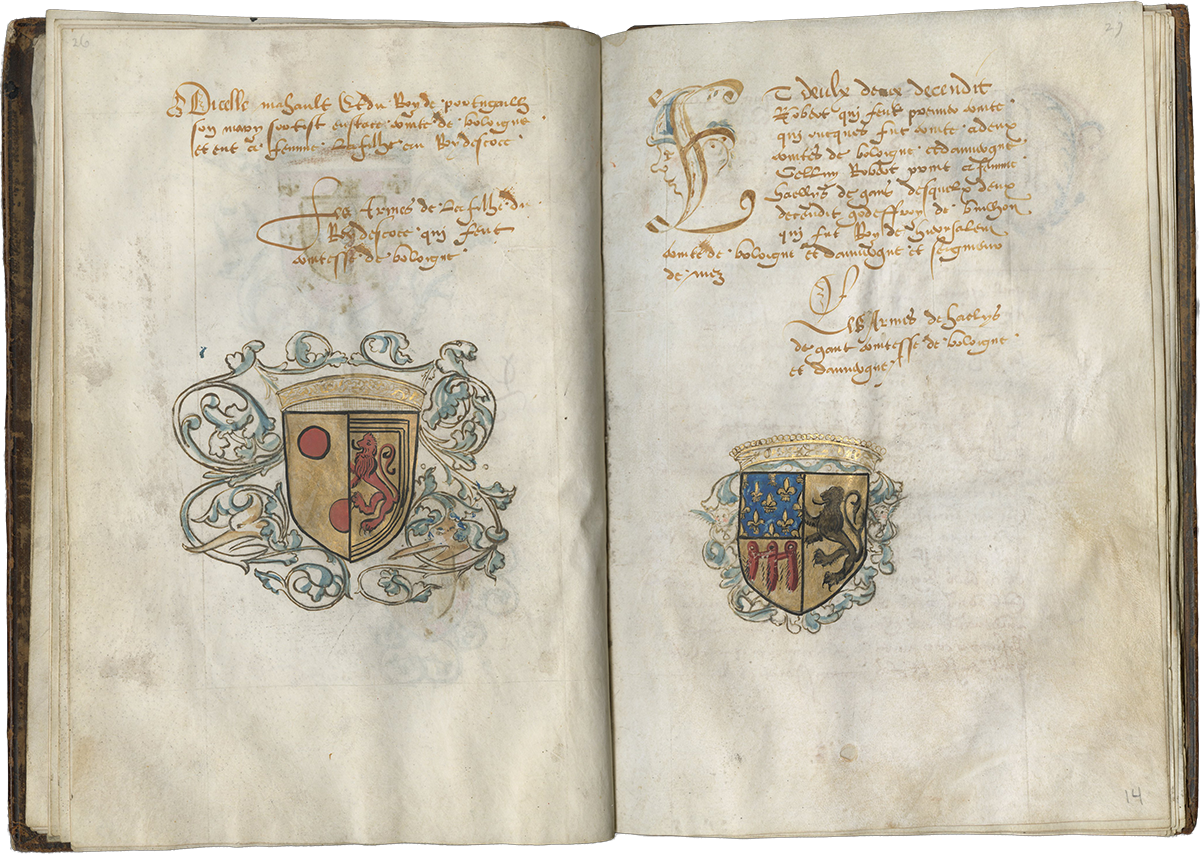 26
Dicelle mahault Et du Roy de portugailh
son mary sortist eustace comte de boloigne
et eut a femme La filhe au Roy descoce
Les Armes de La filhe du
Roy descoce qui feut
comtesse de boloigne
27
ET deulx deux decendit
Robert qui feut premier comte
qui oncques fut comte a deux
comtés de boloigne et dauuergne
Celluy Robert print a femme
haelys de gant desquelz deux
decendit godeffroy de builhon
qui fut Roy de Iherusalem
comte de boloigne et dauuergne et seigneur
de mez
Les Armes de haelys
de gant comtesse de boloigne
et dauuergne
14